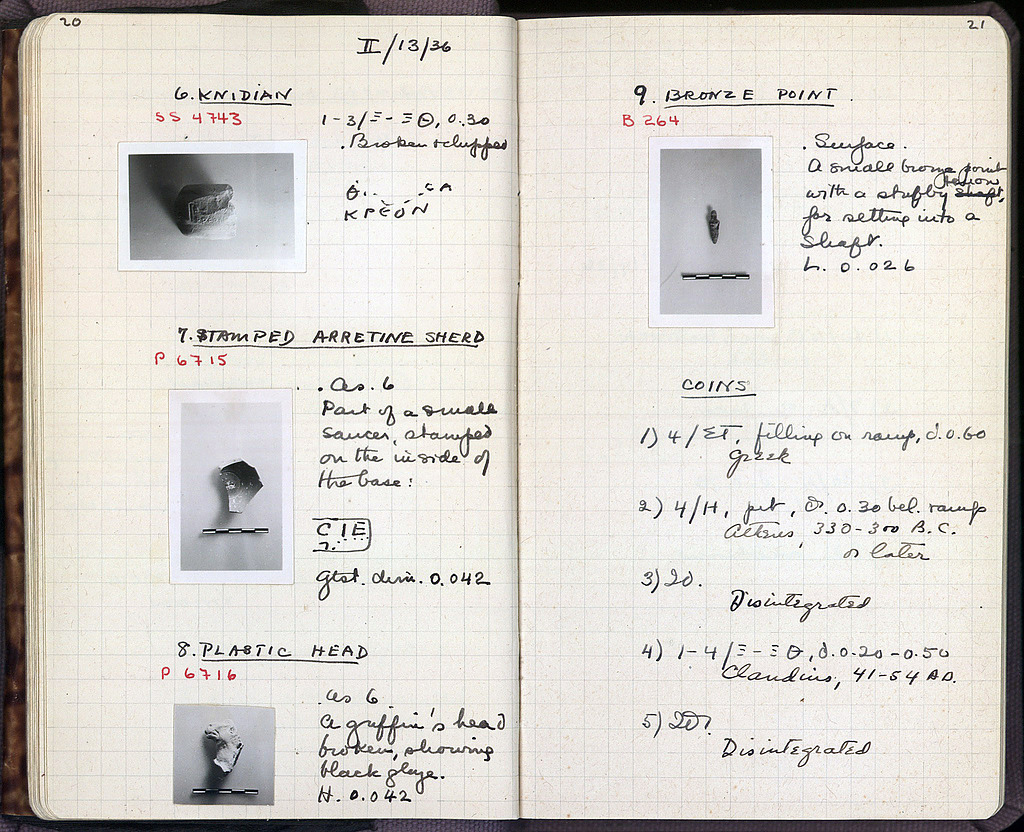 20
II/13/36
6. KNIDIAN
SS 4743
1-3/Ξ-ΞΘ, 0.30
. Broken & chipped
KPEON
7. STAMPED ARRETINE SHERD
P 6715
. As. 6
Part of a small
saucer, stamped
on the inside of
the base:
CIE
gtst. dim. 0.042
8. PLASTIC HEAD
P 6716
. as 6.
A griffin's head
broken, showing
black glaze.
H. 0.042
21
9. BRONZE POINT.
B 264
. Surface.
A small bronze point
with a stubby shaft,
for setting into a
shaft.
L. 0.026
COINS
1) 4/ΣΤ, filling on ramp, d. 0.60
Greek
2) 4/H, pit, d. 0.30 bel. ramp
Athens, 330-300 B.C.
or later
3) ID.
Disintegrated
4) 1-4/Ξ-ΞΘ, d. 0.20-0.50
Claudius, 41-54 A.D.
5) ID?
Disintegrated